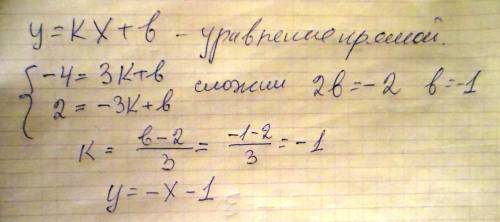 y = kx + b - уравнение прямой.
{ -4 = 3k+b сложим 2b = -2 b = -1
2 = -3k+b
k = (b-2)/3 = (-1-2)/3 = -1
y = -x - 1